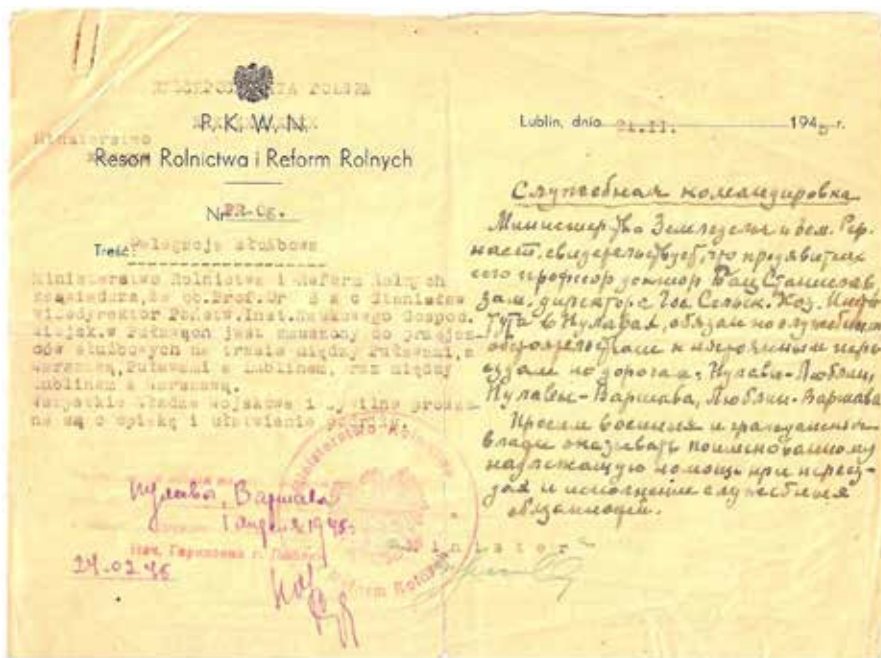 RZECZPOSPOLITA POLSKA
P. K. W. N.
Ministerstwo
Resort Rolnictwa i Reform Rolnych
Nr PR-Og.
Treść: Delegacja służbowa
Ministerstwo Rolnictwa i Reform Rolnych
zaświadcza, że ob. Prof. Dr B a c Stanisław
wicedyrektor Państw. Inst. Naukowego Gospod.
Wiejsk. w Puławach jest zmuszony do przejaz-
dów służbowych na trasie między Puławami, a
Warszawą, Puławami a Lublinem, oraz między
Lublinem a Warszawą.
Wszystkie Władze Wojskowe i Cywilne prosze-
ne są o opiekę i ułatwienie podróży.
Пулавы, Варшава
1 апреля 1945г.
Нач. Гарнизона г. Люблин
24.02 45
Lublin, dnia 21.II. 1945 r.
Служебная командировка
Министерства Земледелия и Зем. Реф.
наст. свидетельствует, что предъявитель
сего профессор доктор Бац Станислав,
зам. директора Гос. Сельск. Хоз. Инсти-
тута в Пулавах, обязан по служебным
обстоятельствам к постоянным пере-
ездам по дорогам: Пулавы-Люблин,
Пулавы-Варшава, Люблин-Варшава
Просим военные и гражданские
влады оказывать поименованному
надлежащую помощь при переез-
дах и исполнении служебных
обязанностей.
Minister
Ministerstwo Rolnictwa
Reform Rolnych